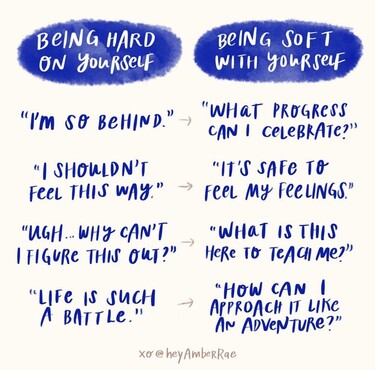 BEING HARD
ON YOURSELF
BEING SOFT
WITH YOURSELF
"I'M SO BEHIND." →
"WHAT PROGRESS
CAN I CELEBRATE?"
"I SHOULDN'T
FEEL THIS WAY." →
"IT'S SAFE TO
FEEL MY FEELINGS."
"UGH... WHY CAN'T
I FIGURE THIS OUT?" →
"WHAT IS THIS
HERE TO TEACH ME?"
"LIFE IS SUCH
A BATTLE." →
"HOW CAN I
APPROACH IT LIKE
AN ADVENTURE?"
xo @heyAmberRae